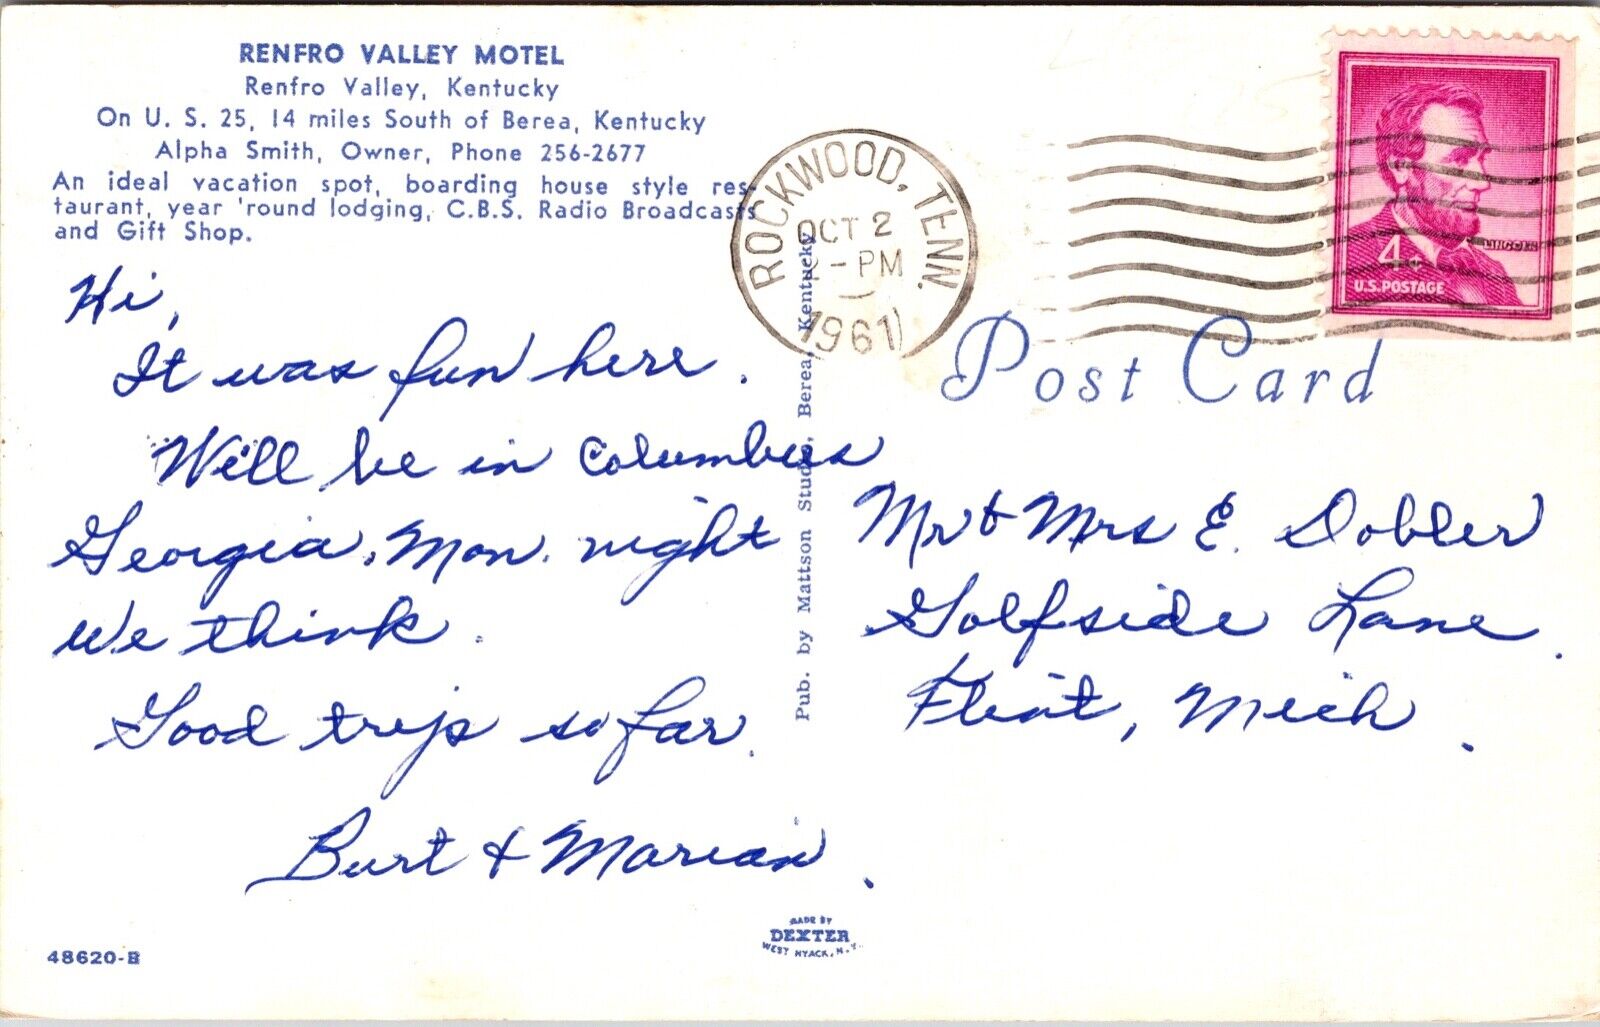 RENFRO VALLEY MOTEL
Renfro Valley, Kentucky
On U. S. 25, 14 miles South of Berea, Kentucky
Alpha Smith, Owner, Phone 256-2677
An ideal vacation spot, boarding house style res-
taurant, year 'round lodging, C.B.S. Radio Broadcasts
and Gift Shop.
Hi,
It was fun here.
Will be in Columbus
Georgia, Mon. night
We think.
Good trip so far.
Burt & Marian.
48620-B
Pub. by Mattson Studio, Berea, Kentucky
MADE BY
DEXTER
WEST NYACK, N.Y.
ROCKWOOD, TENN.
OCT 2
-PM
1961
LINCOLN
4¢
U.S. POSTAGE
Post Card
Mr & Mrs E. Dobler
Golfside Lane.
Flint, Mich.